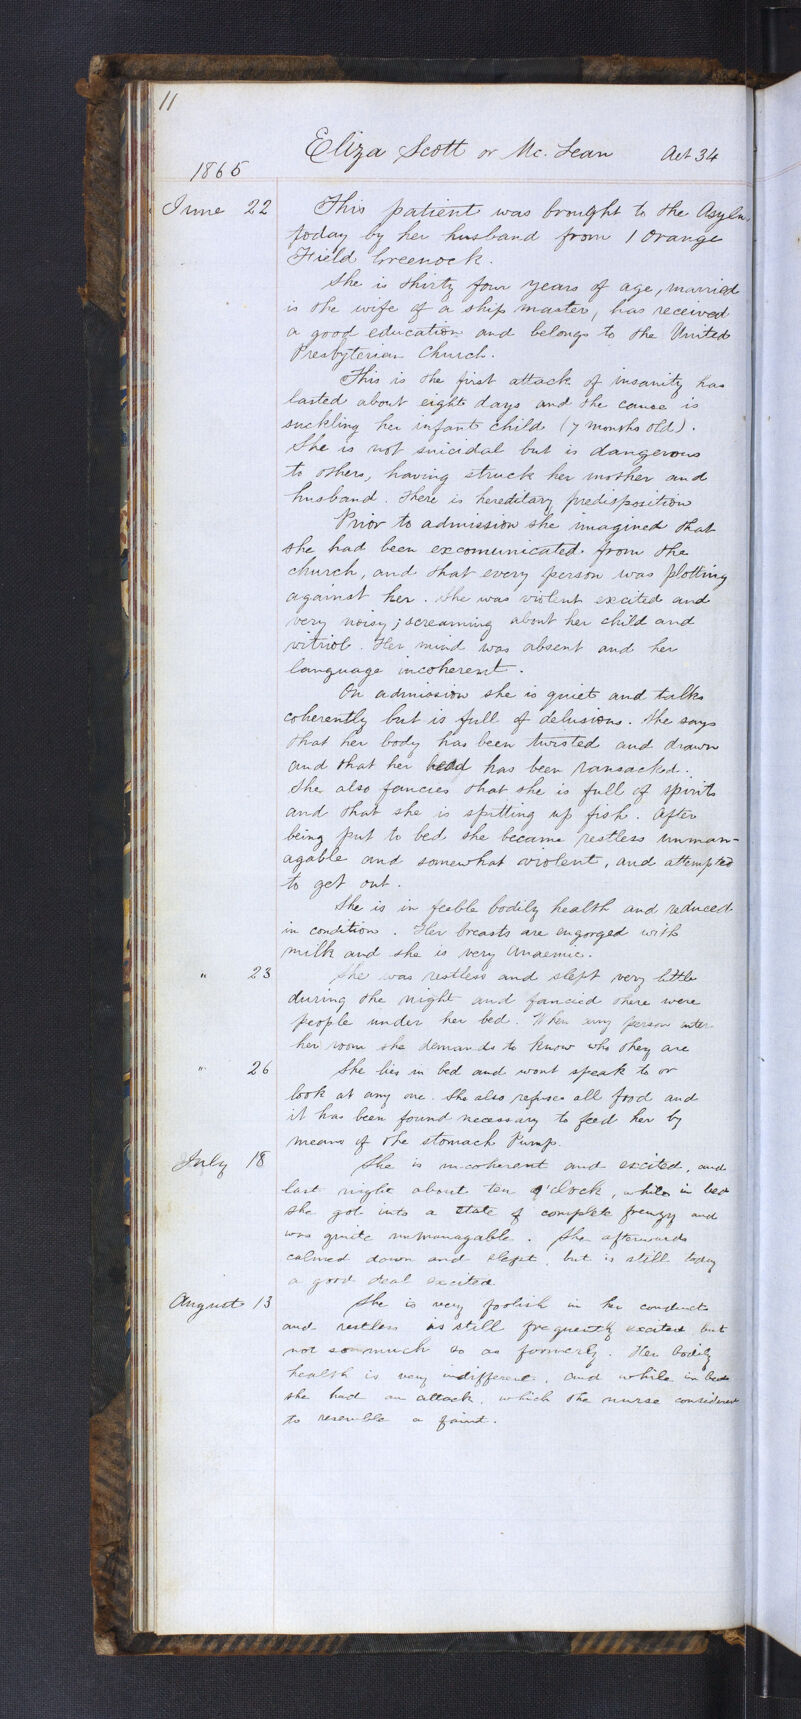 11
Eliza Scott or Mc. Lean Aet 34
1865
June 22 This patient was brought to the Asylum
today by her husband from 1 Orange
Field Greenock.
She is thirty four years of age, married
is the wife of a ship master, has received
a good education and belongs to the United
Presbyterian Church.
This is the first attack of insanity has
lasted about eight days and the cause is
suckling her infant child (7 months old).
She is not suicidal but is dangerous
to others, having struck her mother and
husband. There is hereditary predisposition
Prior to admission she imagined that
she had been excomunicated from the
church, and that every person was plotting
against her. She was violent excited and
very noisy; screaming about her child and
vitriol. Her mind was absent and her
language incoherent.
On admission she is quiet and talks
coherently but is full of delusions. She says
that her body has been twisted and drawn
and that her head has been ransacked.
She also fancies that she is full of spirits
and that she is spitting up fish. After
being put to bed she became restless unman-
agable and somewhat violent, and attempted
to get out.
She is in feeble bodily health and reduced
in condition. Her breasts are engorged with
milk and she is very anaemic.
" 23 She was restless and slept very little
during the night and fancied there were
people under her bed. When any person enter
her room she demands to know who they are
" 26 She lies in bed and wont speak to or
look at any one. She also refuses all food and
it has been found necessary to feed her by
means of the stomach Pump.
July 18 She is incoherent and excited, and
last night about ten o'clock, while in bed
she got into a state of complete frenzy and
was quite unmanagable. She afterwards
calmed down and slept, but is still today
a good deal excited
August 13 She is very foolish in her conduct
and restless is still frequently excited but
not so much so as formerly. Her bodily
health is very indifferent, and while in bed
she had an attack, which the nurse considered
to resemble a faint.